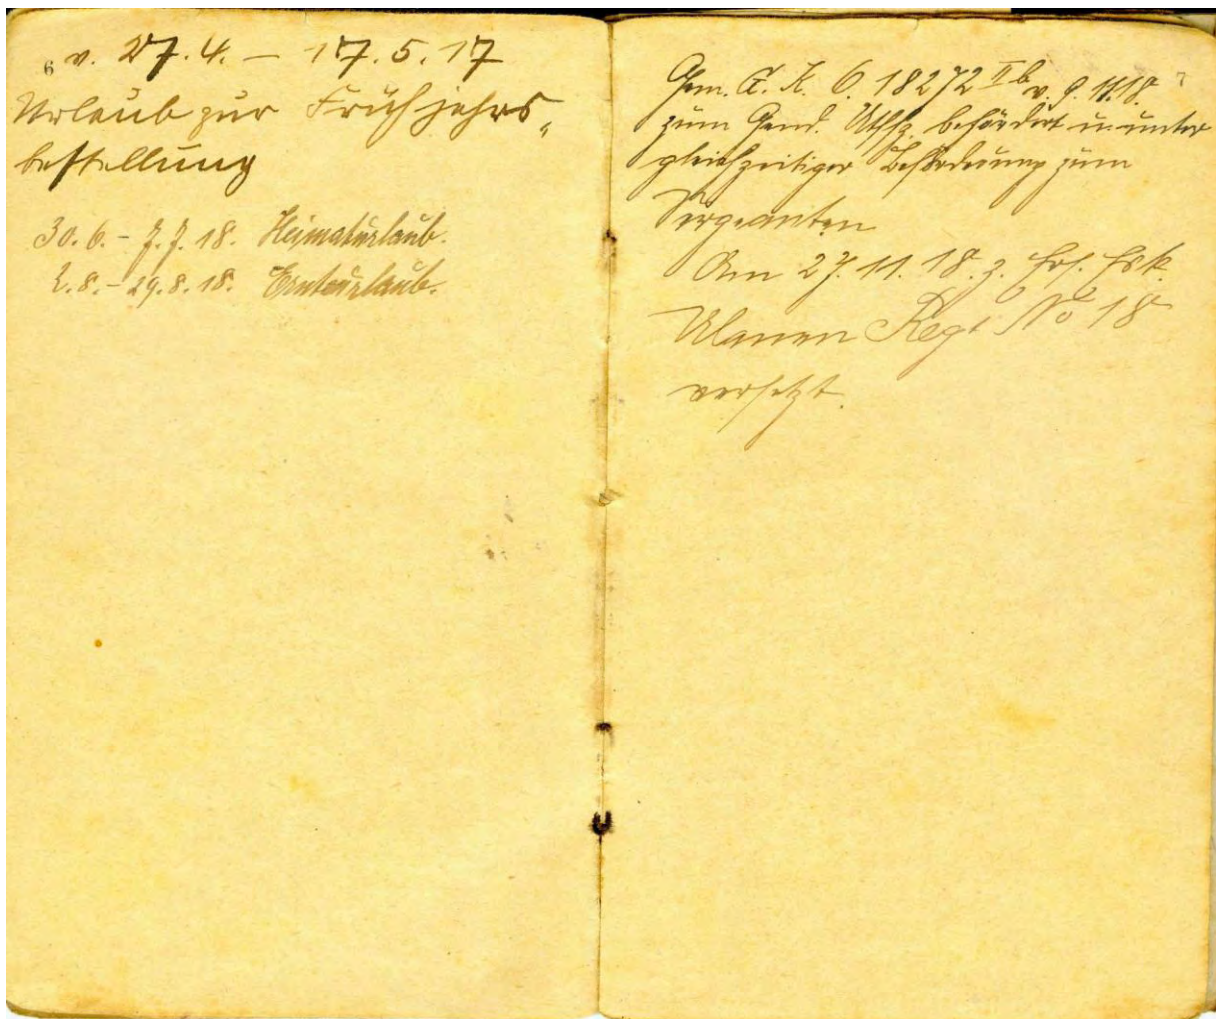 6
v. 27.4. — 17.5.17
Urlaub zur Frühjahrs-
bestellung
30.6. - 7.7.18. Heimaturlaub.
2.8. - 29.8.18. Ernteurlaub.
7
Gem. A. K. 6. 18272 IIb v. 9.11.18.
zum Gend. Utffz. befördert u. unter
gleichzeitiger Beförderung zum
Sergeanten
Am 27.11.18. z. Ers. Esk.
Ulanen Regt No 18
versetzt.